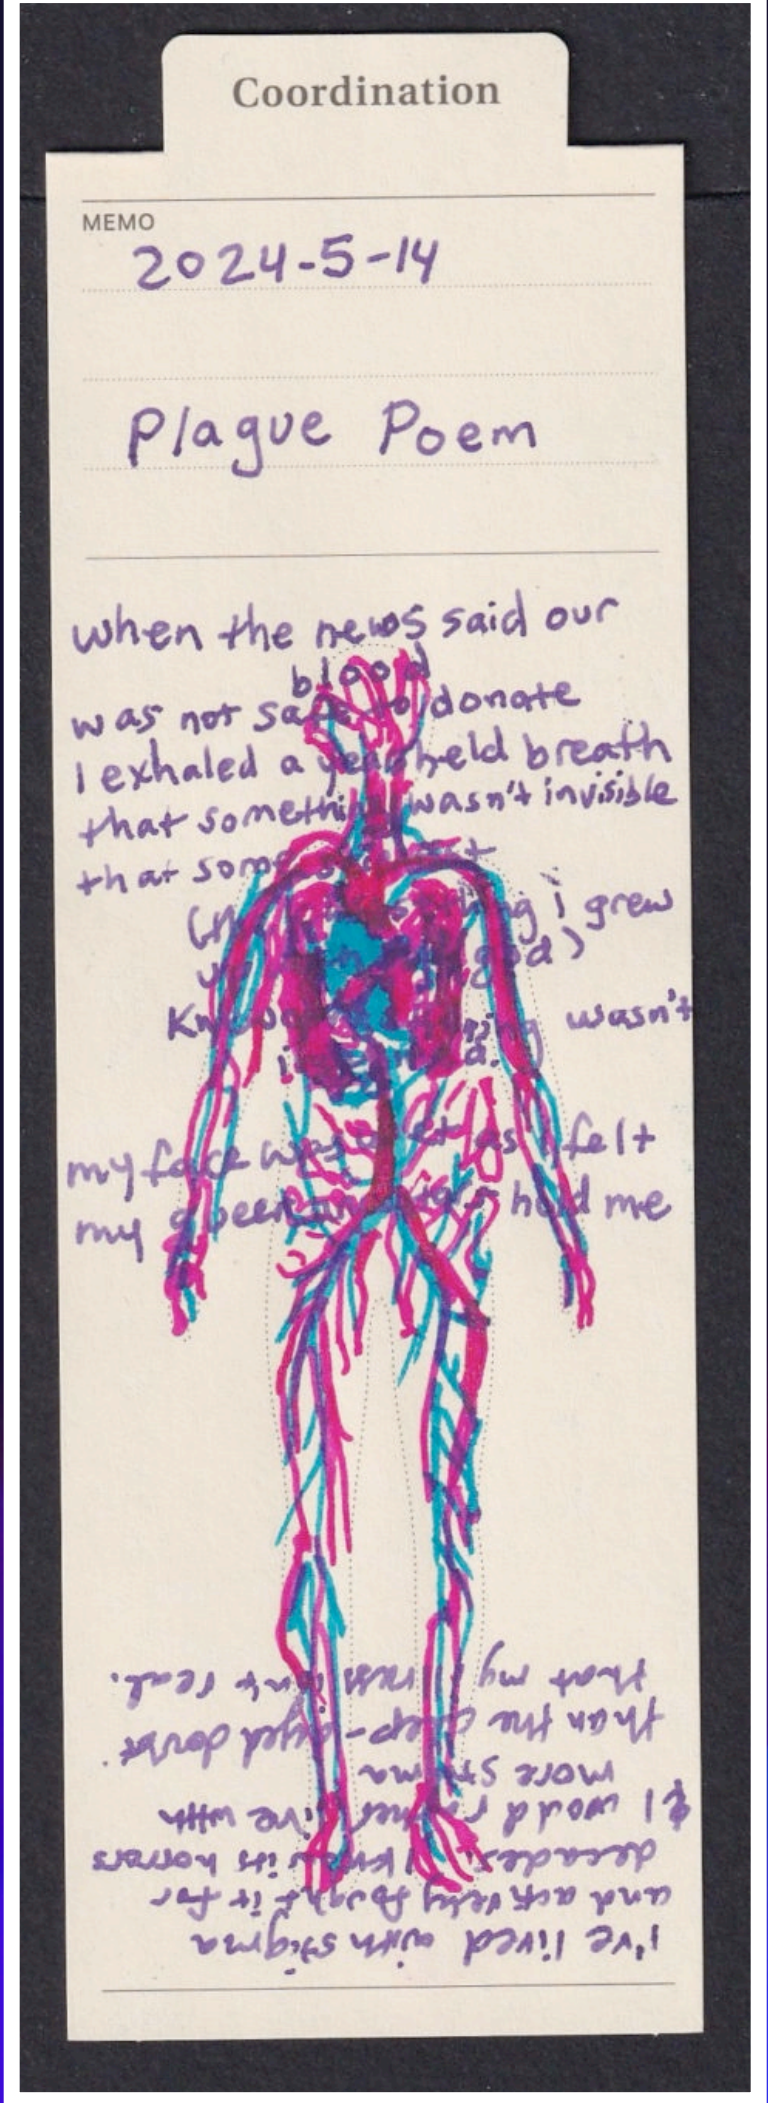 Coordination
MEMO
2024-5-14
Plague Poem
when the news said our
blood
was not safe to donate
I exhaled a year held breath
that something wasn't invisible
that some
i grew
god)
wasn't
my face was wet as I felt
my queer hold me
I've lived with stigma
and actively fought it for
decades. I know its horrors
& I would rather live with
more stigma
than the deep-eyed doubt
that my illness isn't real.